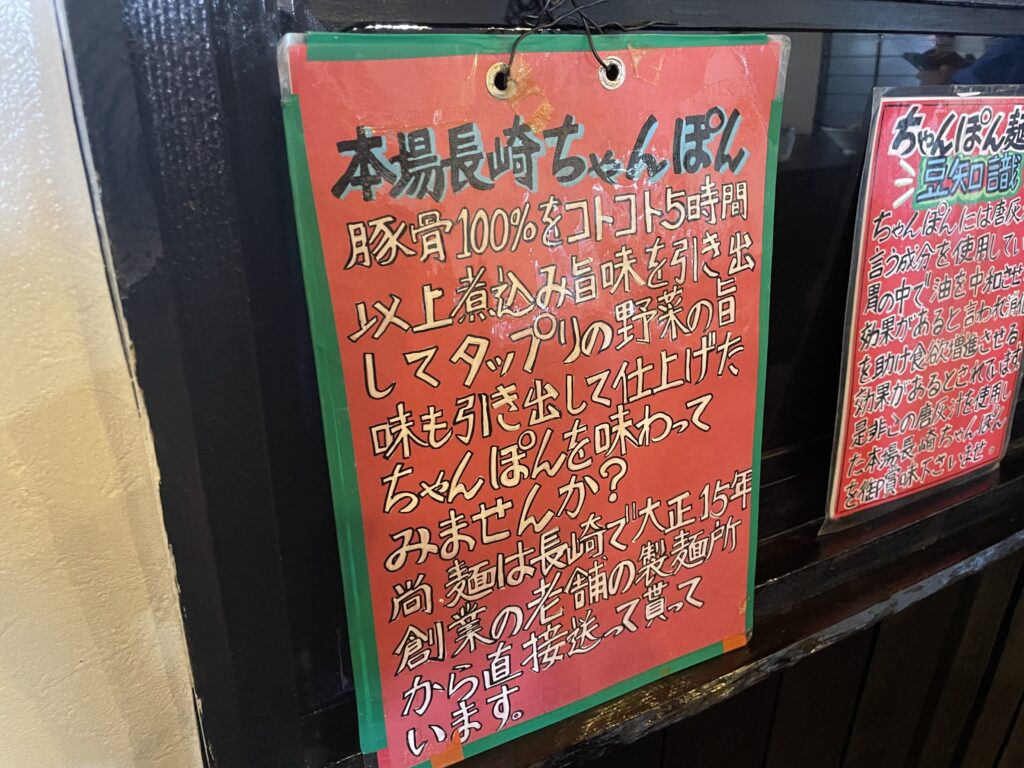 本場長崎ちゃんぽん
豚骨100%をコトコト5時間
以上煮込み旨味を引き出
してタップリの野菜の旨
味も引き出して仕上げた
ちゃんぽんを味わって
みませんか?
尚.麺は長崎で大正15年
創業の老舗の製麺所
から直接送って貰って
います。
ちゃんぽん麺
豆知識
ちゃんぽんには唐灰
言う成分を使用してい
胃の中で油を中和させ
効果があると言われ消化
を助け食欲を増進させる
効果があるとされています
是非この唐灰汁を使用し
た本場長崎ちゃんぽん
を御賞味下さいませ。